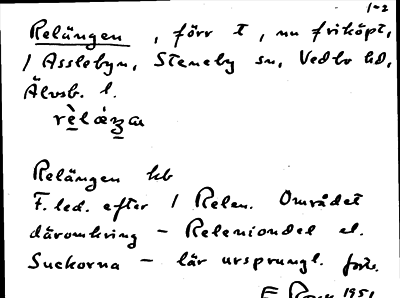 1-2
Relängen, förr t, nu friköpt,
/ Asslebyn, Steneby sn, Vedbo hd,
Älvsb. l.
Relängen hb
F. led. efter / Relen. Området
däromkring - Releniondel el.
Suckorna - lär ursprungl.
1951